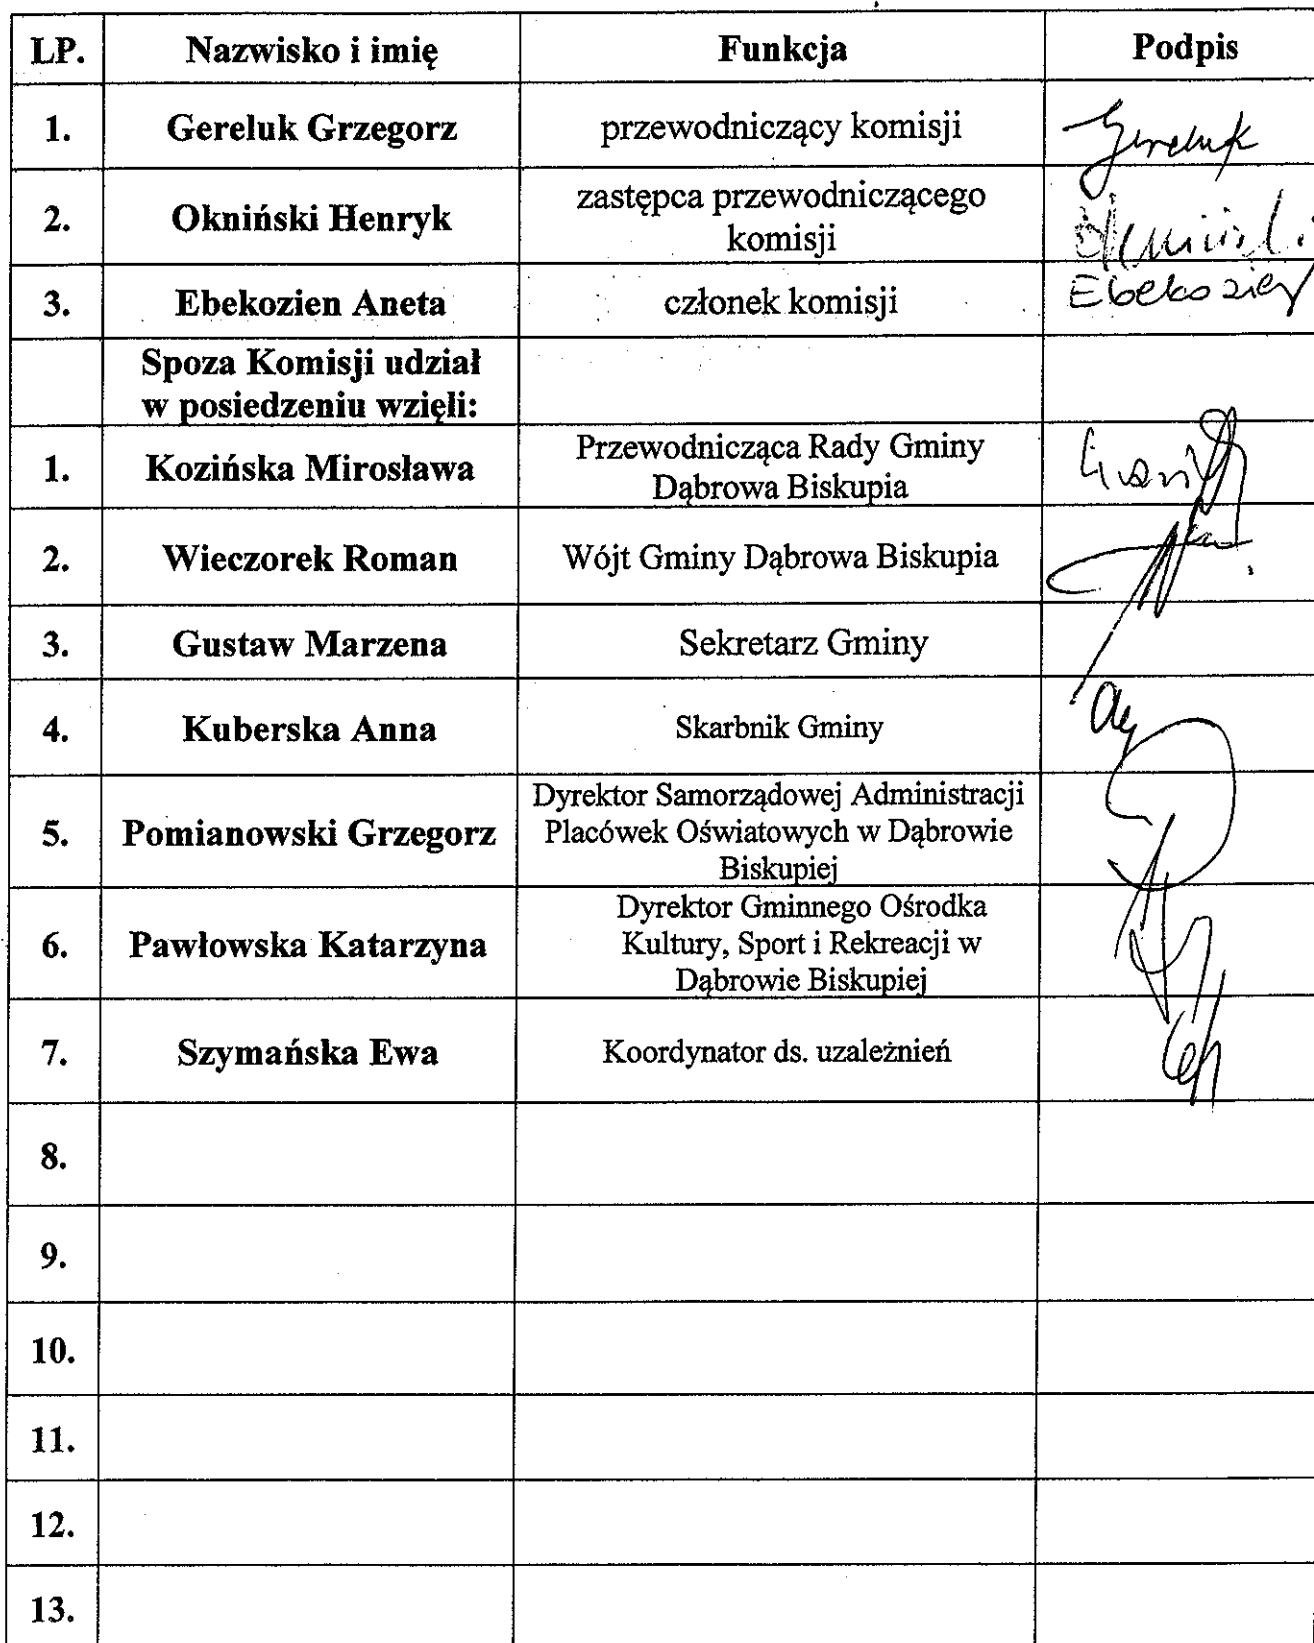 LP. Nazwisko i imię Funkcja Podpis
1. Gereluk Grzegorz przewodniczący komisji Gereluk
2. Okniński Henryk zastępca przewodniczącego
komisji
3. Ebekozien Aneta członek komisji Ebekozien
Spoza Komisji udział
w posiedzeniu wzięli:
1. Kozińska Mirosława Przewodnicząca Rady Gminy
Dąbrowa Biskupia
2. Wieczorek Roman Wójt Gminy Dąbrowa Biskupia
3. Gustaw Marzena Sekretarz Gminy
4. Kuberska Anna Skarbnik Gminy
5. Pomianowski Grzegorz Dyrektor Samorządowej Administracji
Placówek Oświatowych w Dąbrowie
Biskupiej
6. Pawłowska Katarzyna Dyrektor Gminnego Ośrodka
Kultury, Sport i Rekreacji w
Dąbrowie Biskupiej
7. Szymańska Ewa Koordynator ds. uzależnień
8.
9.
10.
11.
12.
13.